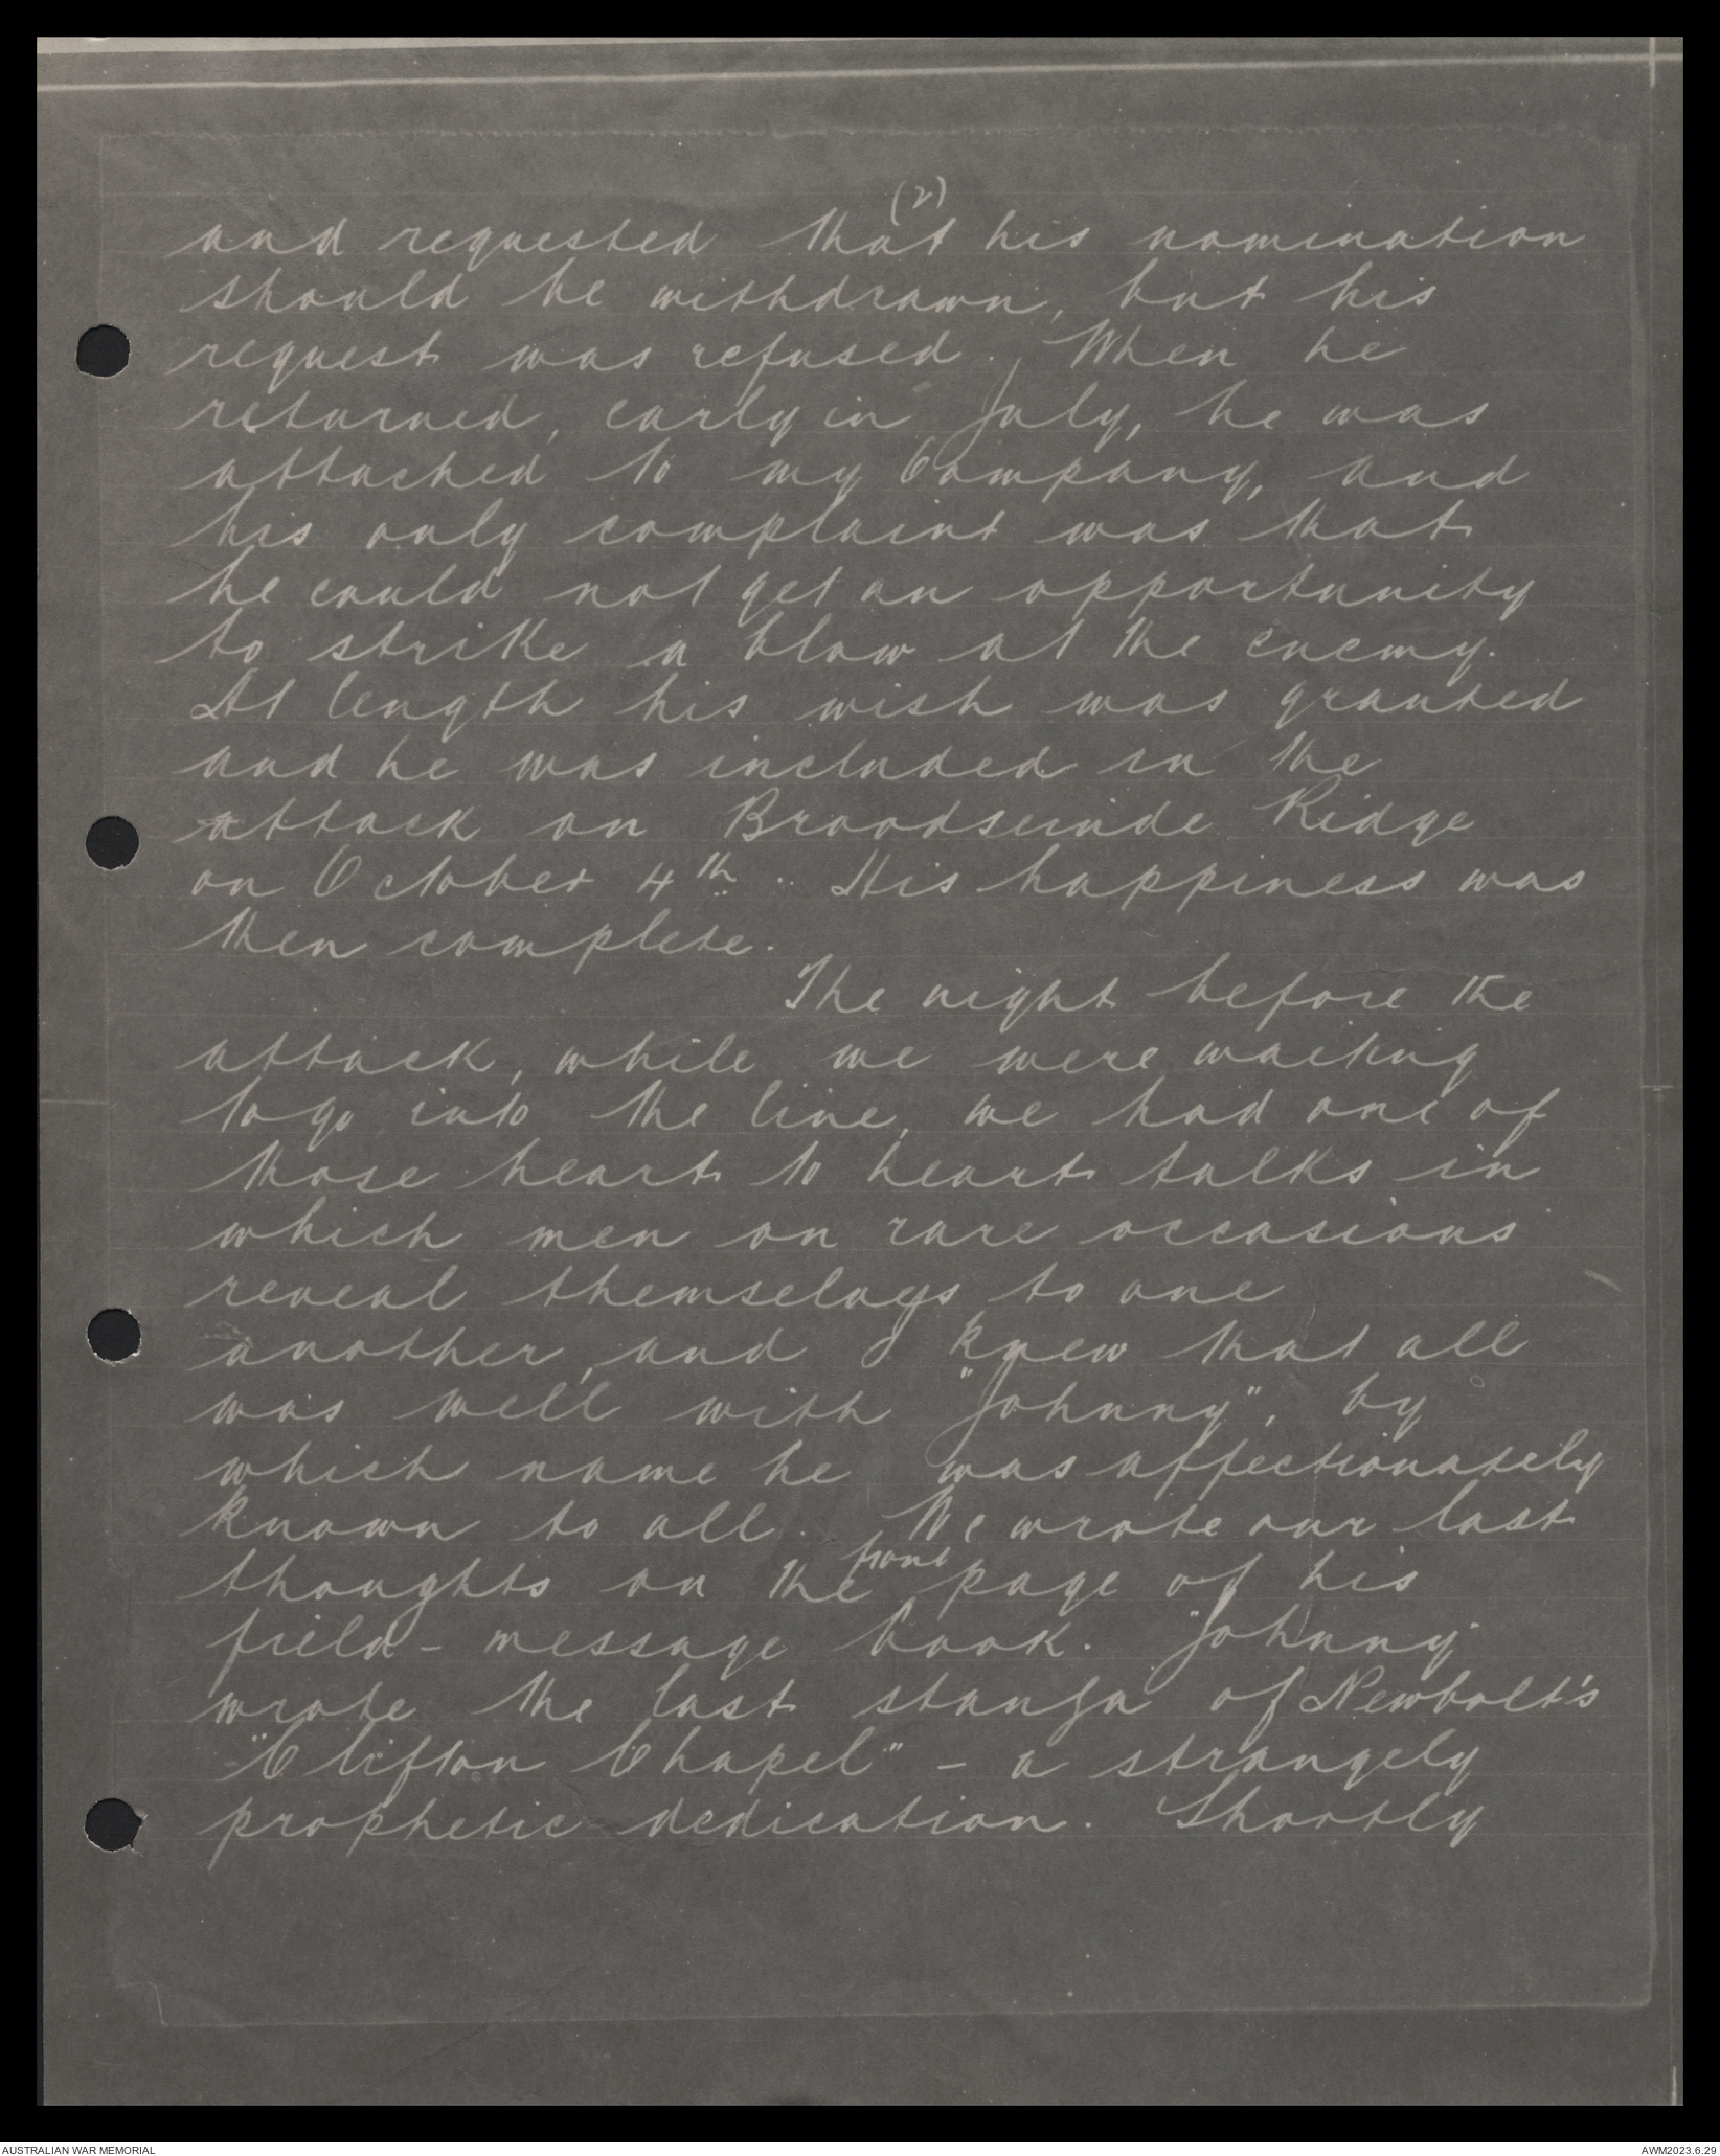 (2)
and requested that his nomination
should be withdrawn, but his
request was refused. When he
returned, early in July, he was
attached to my Company, and
his only complaint was that
he could not get an opportunity
to strike a blow at the enemy.
At length his wish was granted
and he was included in the
attack on Broodseinde Ridge
on October 4th. His happiness was
then complete.
The night before the
attack, while we were waiting
to go into the line, we had one of
those heart to heart talks in
which men on rare occasions
reveal themselves to one
another, and I knew that all
was well with "Johnny", by
which name he was affectionately
known to all. We wrote our last
front
thoughts on the page of his
field-message book. "Johnny"
wrote the last stanza of Newbolt's
"Clifton Chapel" - a strangely
prophetic dedication. Shortly
AUSTRALIAN WAR MEMORIAL AWM2023.6.29